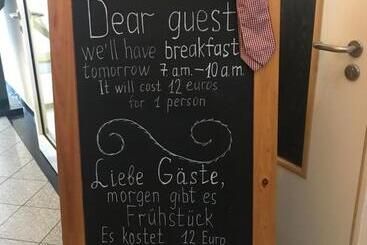 Dear guest
we'll have breakfast
tomorrow 7 a.m. – 10 a.m.
It will cost 12 euros
for 1 person
Liebe Gäste,
morgen gibt es
Frühstück
Es kostet 12 Euro